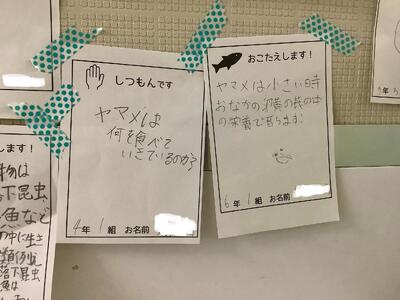 しつもんです
ヤマメは
何を食べて
いきているのか?
4年 1組 お名前
おこたえします!
ヤマメは小さい時
おなかの
の栄養で育ちます!
6年 1組 お名前
します!
物は
下昆虫
魚など
の中に生き
落下昆虫
魚は